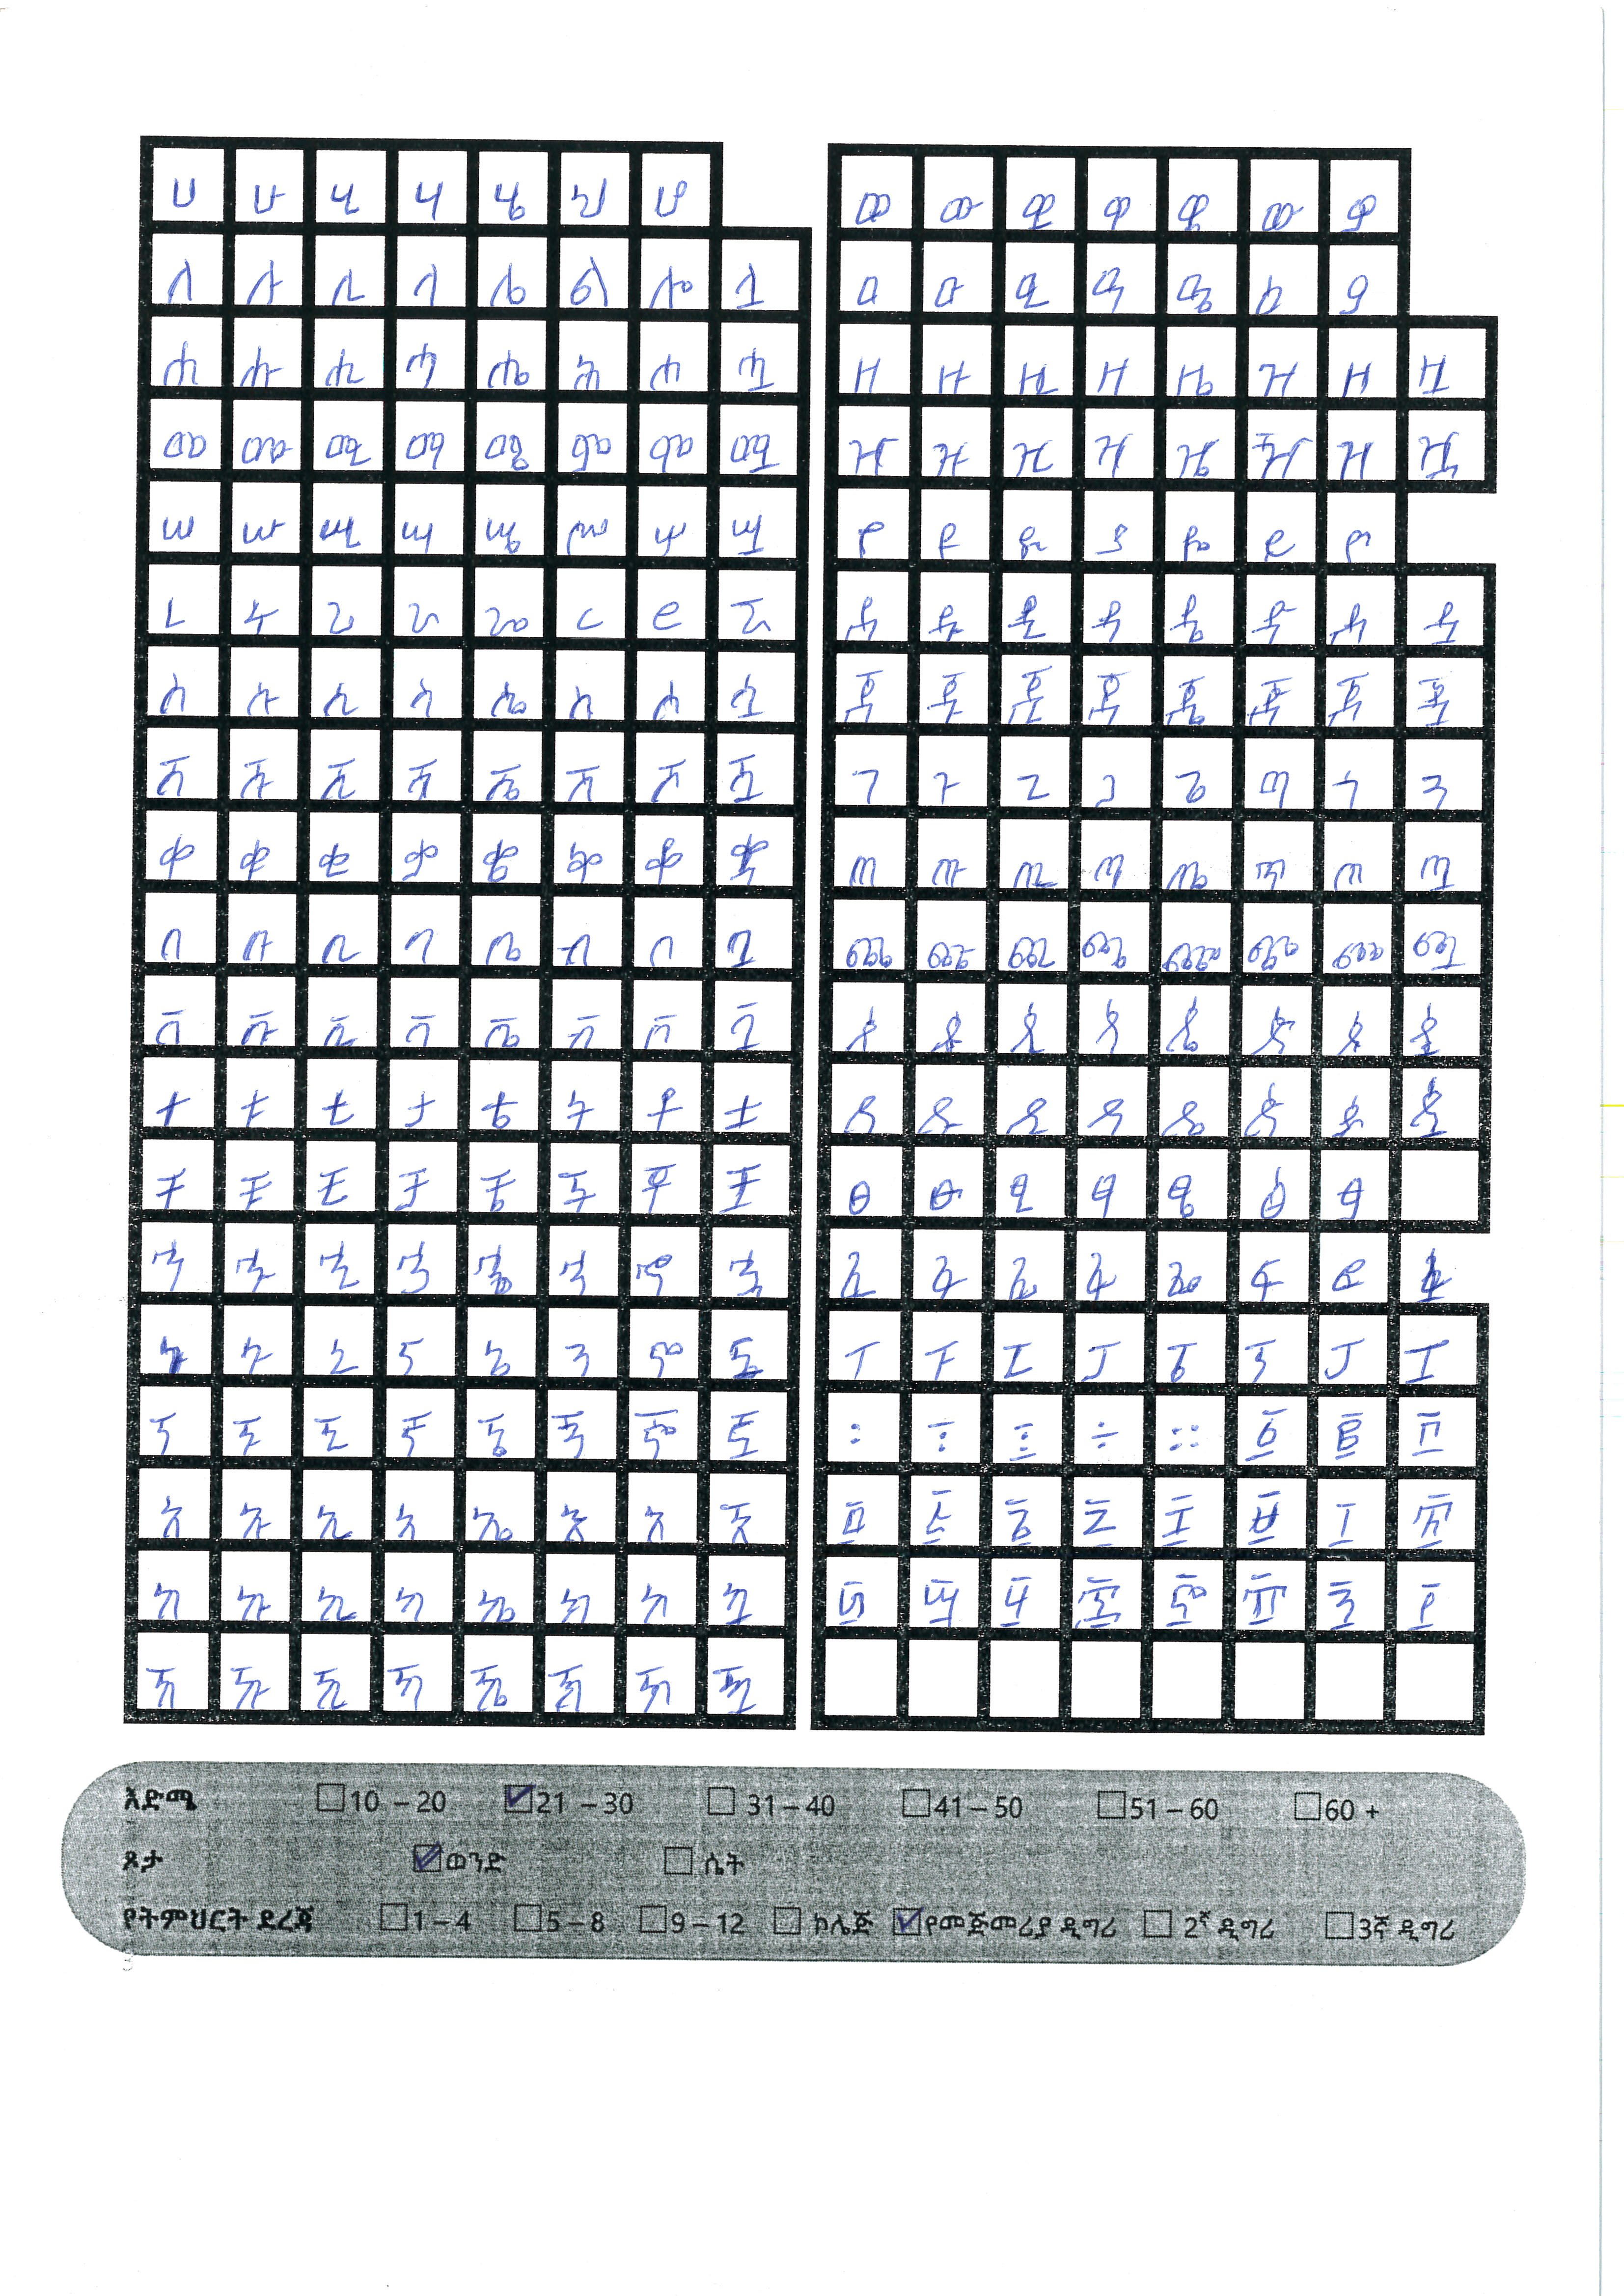 ሀ ሁ ሂ ሃ ሄ ህ ሆ
ለ ሉ ሊ ላ ሌ ል ሎ ሏ
ሐ ሑ ሒ ሓ ሔ ሕ ሖ ሗ
መ ሙ ሚ ማ ሜ ም ሞ ሟ
ሠ ሡ ሢ ሣ ሤ ሥ ሦ ሧ
ረ ሩ ሪ ራ ሬ ር ሮ ሯ
ሰ ሱ ሲ ሳ ሴ ስ ሶ ሷ
ሸ ሹ ሺ ሻ ሼ ሽ ሾ ሿ
ቀ ቁ ቂ ቃ ቄ ቅ ቆ ቋ
በ ቡ ቢ ባ ቤ ብ ቦ ቧ
ቨ ቩ ቪ ቫ ቬ ቭ ቮ ቯ
ተ ቱ ቲ ታ ቴ ት ቶ ቷ
ቸ ቹ ቺ ቻ ቼ ች ቾ ቿ
ኀ ኁ ኂ ኃ ኄ ኅ ኆ ኋ
ነ ኑ ኒ ና ኔ ን ኖ ኗ
ኘ ኙ ኚ ኛ ኜ ኝ ኞ ኟ
አ ኡ ኢ ኣ ኤ እ ኦ ኧ
ከ ኩ ኪ ካ ኬ ክ ኮ ኳ
ኸ ኹ ኺ ኻ ኼ ኽ ኾ ዃ
ወ ዉ ዊ ዋ ዌ ው ዎ
ዐ ዑ ዒ ዓ ዔ ዕ ዖ
ዘ ዙ ዚ ዛ ዜ ዝ ዞ ዟ
ዠ ዡ ዢ ዣ ዤ ዥ ዦ ዧ
የ ዩ ዪ ያ ዬ ይ ዮ
ደ ዱ ዲ ዳ ዴ ድ ዶ ዷ
ጀ ጁ ጂ ጃ ጄ ጅ ጆ ጇ
ገ ጉ ጊ ጋ ጌ ግ ጎ ጓ
ጠ ጡ ጢ ጣ ጤ ጥ ጦ ጧ
ጨ ጩ ጪ ጫ ጬ ጭ ጮ ጯ
ጰ ጱ ጲ ጳ ጴ ጵ ጶ ጷ
ጸ ጹ ጺ ጻ ጼ ጽ ጾ ጿ
ፀ ፁ ፂ ፃ ፄ ፅ ፆ
ፈ ፉ ፊ ፋ ፌ ፍ ፎ ፏ
ፐ ፑ ፒ ፓ ፔ ፕ ፖ ፗ
፡ ፤ ፧ ÷ ። ፩ ፪ ፫
፬ ፭ ፮ ፯ ፰ ፱ ፲ ፳
፴ ፵ ፶ ፷ ፸ ፹ ፺ ፻
እድሜ 10 – 20 21 – 30 31 – 40 41 – 50 51 – 60 60 +
ጾታ ወንድ ሴት
የትምህርት ደረጃ 1 – 4 5 – 8 9 – 12 ኮሌጅ የመጀመሪያ ዲግሪ 2ኛ ዲግሪ 3ኛ ዲግሪ